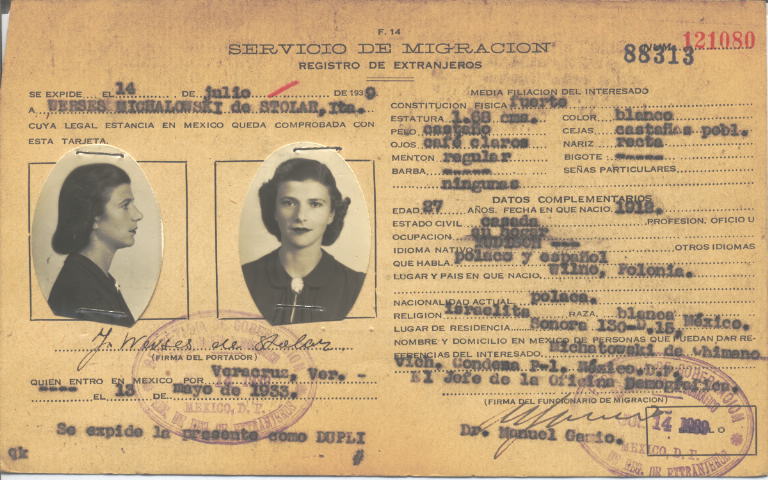 F. 14
SERVICIO DE MIGRACION
REGISTRO DE EXTRANJEROS
NUM. 121080
88313
SE EXPIDE EL 14 DE julio DE 1939
A WERSES MICHALOWSKI de STOLAR, Ita.
CUYA LEGAL ESTANCIA EN MEXICO QUEDA COMPROBADA CON
ESTA TARJETA.
J. Werses de Stolar
(FIRMA DEL PORTADOR)
QUIEN ENTRO EN MEXICO POR Veracruz, Ver. -
---- EL 13 DE mayo de 1933.
Se expide la presente como DUPLI
gk #
MEDIA FILIACION DEL INTERESADO
CONSTITUCION FISICA fuerte
ESTATURA 1.68 cms. COLOR blanco
PELO castaño CEJAS castañas pobl.
OJOS café claros NARIZ recta
MENTON regular BIGOTE -----
BARBA ----- SEÑAS PARTICULARES
ningunas
DATOS COMPLEMENTARIOS
EDAD 27 AÑOS. FECHA EN QUE NACIO. 1912.
ESTADO CIVIL casada PROFESION, OFICIO U
OCUPACION su hogar
IDIOMA NATIVO YUDISCH --- OTROS IDIOMAS
QUE HABLA polaco y español
LUGAR Y PAIS EN QUE NACIO. Wilno, Polonia.
NACIONALIDAD ACTUAL polaca.
RELIGION israelita RAZA blanca
LUGAR DE RESIDENCIA Sonora 130-D.15, México.
NOMBRE Y DOMICILIO EN MEXICO DE PERSONAS QUE PUEDAN DAR RE-
FERENCIAS DEL INTERESADO. Michatowski de Chimano
vich. Condema P-1. México, D.F.
El Jefe de la Oficina Demográfica.
(FIRMA DEL FUNCIONARIO DE MIGRACION)
Dr. Manuel Gamio.
14 1939
MEXICO, D. F.
MEXICO, D. F.